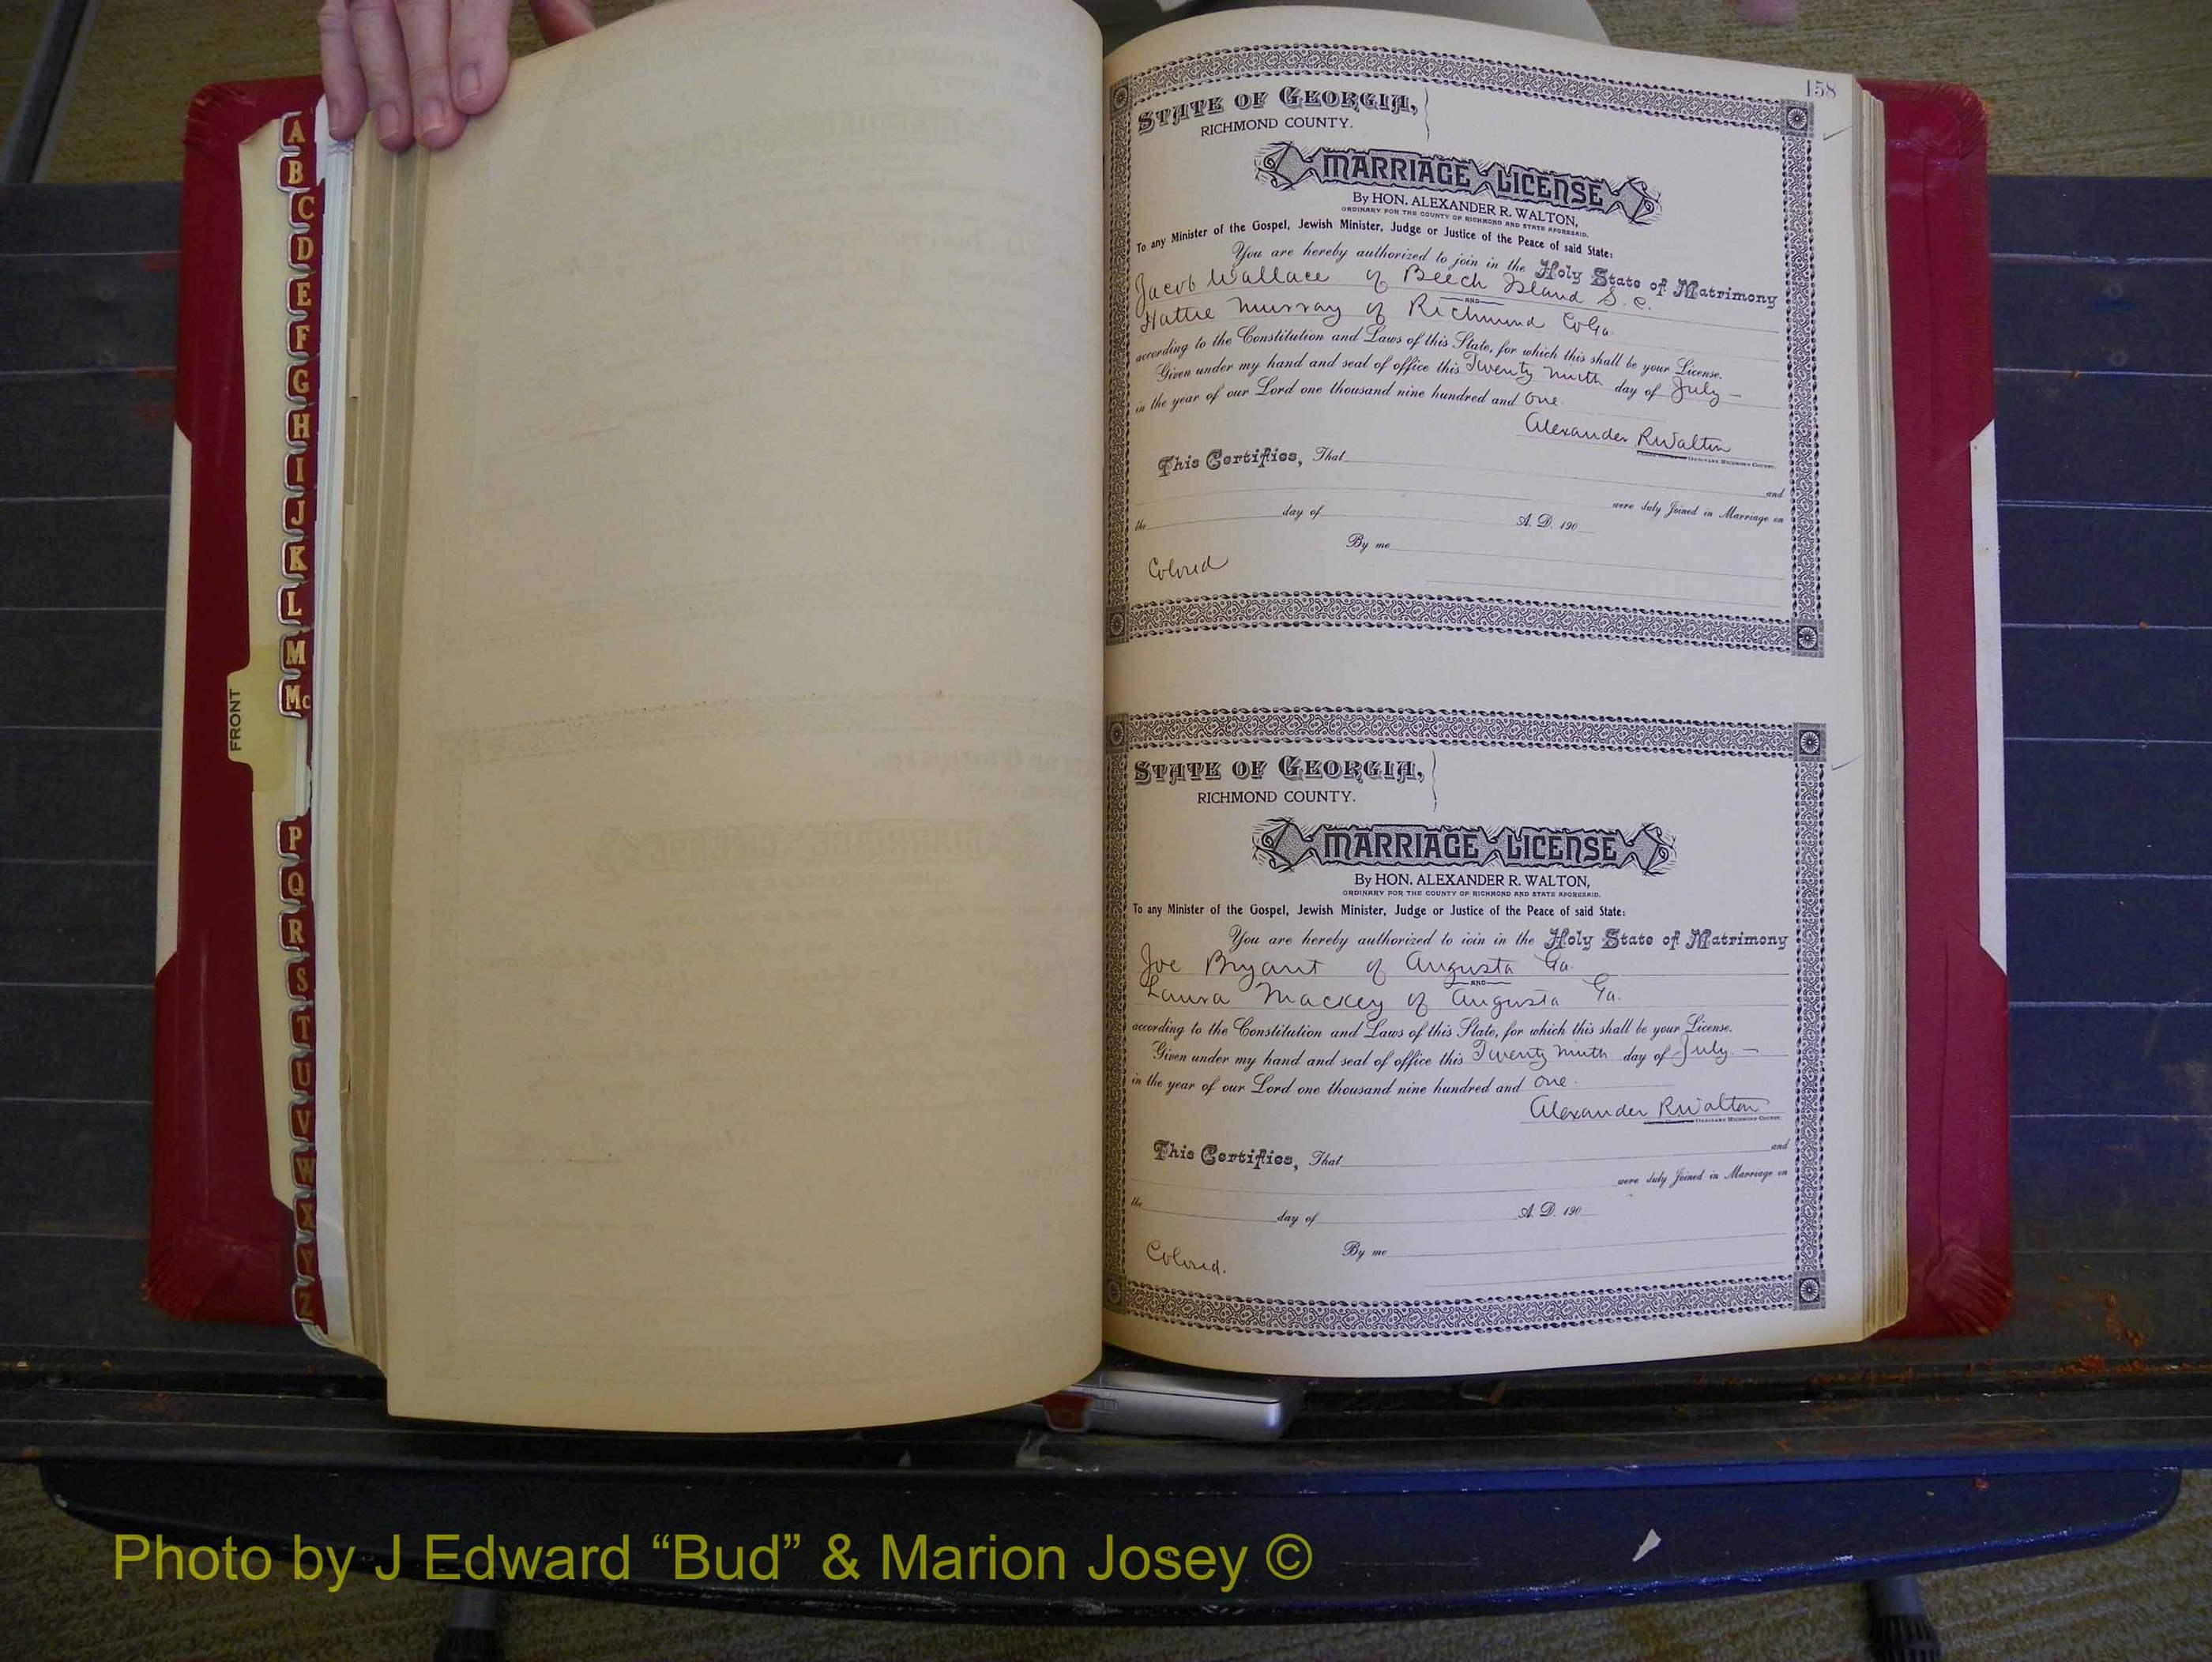 A
B
C
D
E
F
G
H
I
J
K
L
M
Mc
P
Q
R
S
T
U
V
W
X
Y
Z
FRONT
158
STATE OF GEORGIA,
RICHMOND COUNTY.
MARRIAGE LICENSE
By HON. ALEXANDER R. WALTON,
ORDINARY FOR THE COUNTY OF RICHMOND AND STATE AFORESAID.
To any Minister of the Gospel, Jewish Minister, Judge or Justice of the Peace of said State:
You are hereby authorized to join in the Holy State of Matrimony
Jacob Wallace of Beech Island S. C.
AND
Hattie Murray of Richmond Co Ga.
according to the Constitution and Laws of this State, for which this shall be your License.
Given under my hand and seal of office this Twenty ninth day of July
in the year of our Lord one thousand nine hundred and One.
Alexander R Walton
ORDINARY RICHMOND COUNTY.
This Certifies, That
and
were duly Joined in Marriage on
the day of A. D. 190
By me
Colored
STATE OF GEORGIA,
RICHMOND COUNTY.
MARRIAGE LICENSE
By HON. ALEXANDER R. WALTON,
ORDINARY FOR THE COUNTY OF RICHMOND AND STATE AFORESAID.
To any Minister of the Gospel, Jewish Minister, Judge or Justice of the Peace of said State:
You are hereby authorized to join in the Holy State of Matrimony
Joe Bryant of Augusta Ga.
AND
Laura Mackey of Augusta Ga.
according to the Constitution and Laws of this State, for which this shall be your License.
Given under my hand and seal of office this Twenty ninth day of July
in the year of our Lord one thousand nine hundred and One.
Alexander R Walton
ORDINARY RICHMOND COUNTY.
This Certifies, That
and
were duly Joined in Marriage on
the day of A. D. 190
By me
Colored.
Photo by J Edward “Bud” & Marion Josey ©